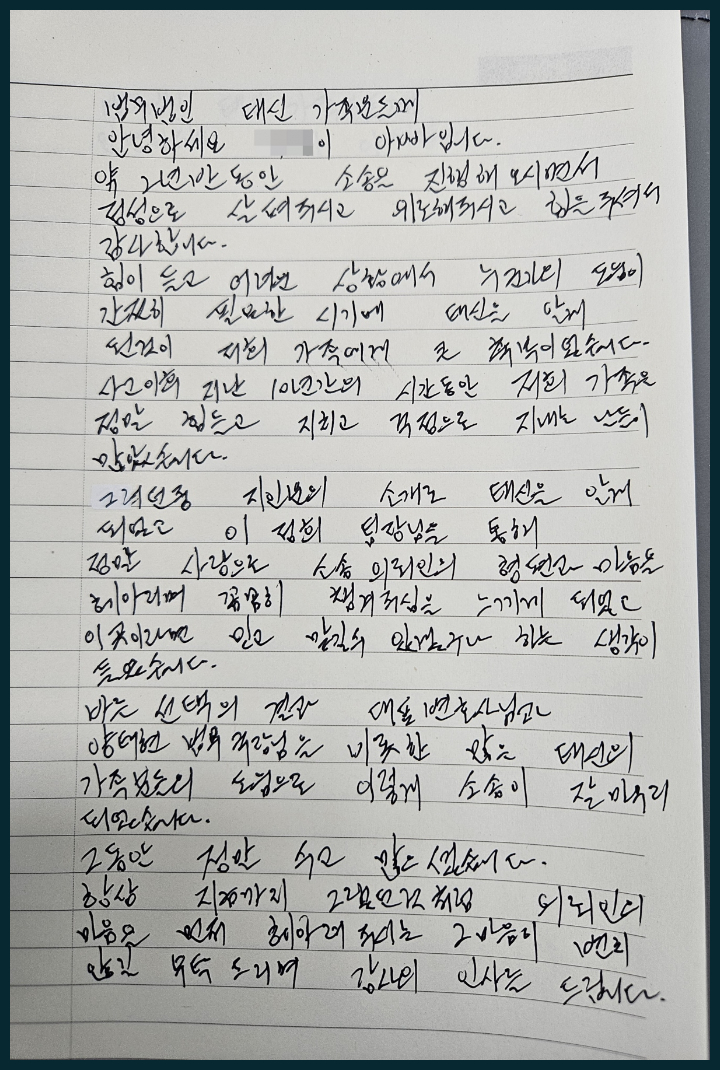 법무법인 태신 가족분들께
안녕하세요 이 아빠입니다.
약 2년반 동안 소송을 진행해 오시면서
정성으로 살펴주시고 위로해주시고 힘을 주셔서
감사합니다.
힘이 들고 어려운 상황에서 누군가의 도움이
간절히 필요한 시기에 태신을 알게
된것이 저희 가족에게 큰 축복이었습니다.
사고이후 지난 10년간의 시간동안 저희 가족은
정말 힘들고 지치고 걱정으로 지내는 날들이
많았습니다.
그러던중 지인분의 소개로 태신을 알게
되었고 이 정희 팀장님을 통해
정말 사랑으로 소송 의뢰인의 형편과 마음을
헤아리며 꼼꼼히 챙겨주심을 느끼게 되었고
이곳이라면 믿고 맡길수 있겠구나 하는 생각이
들었습니다.
바른 선택의 결과 대표변호사님과
양태현 법무국장님을 비롯한 많은 태신의
가족분들의 도움으로 이렇게 소송이 잘 마무리
되었습니다.
그동안 정말 수고 많으셨습니다.
항상 지금까지 그래오신것처럼 의뢰인의
마음을 먼저 헤아려 주시는 그 마음이 변치
않길 부탁 드리며 감사의 인사를 드립니다.